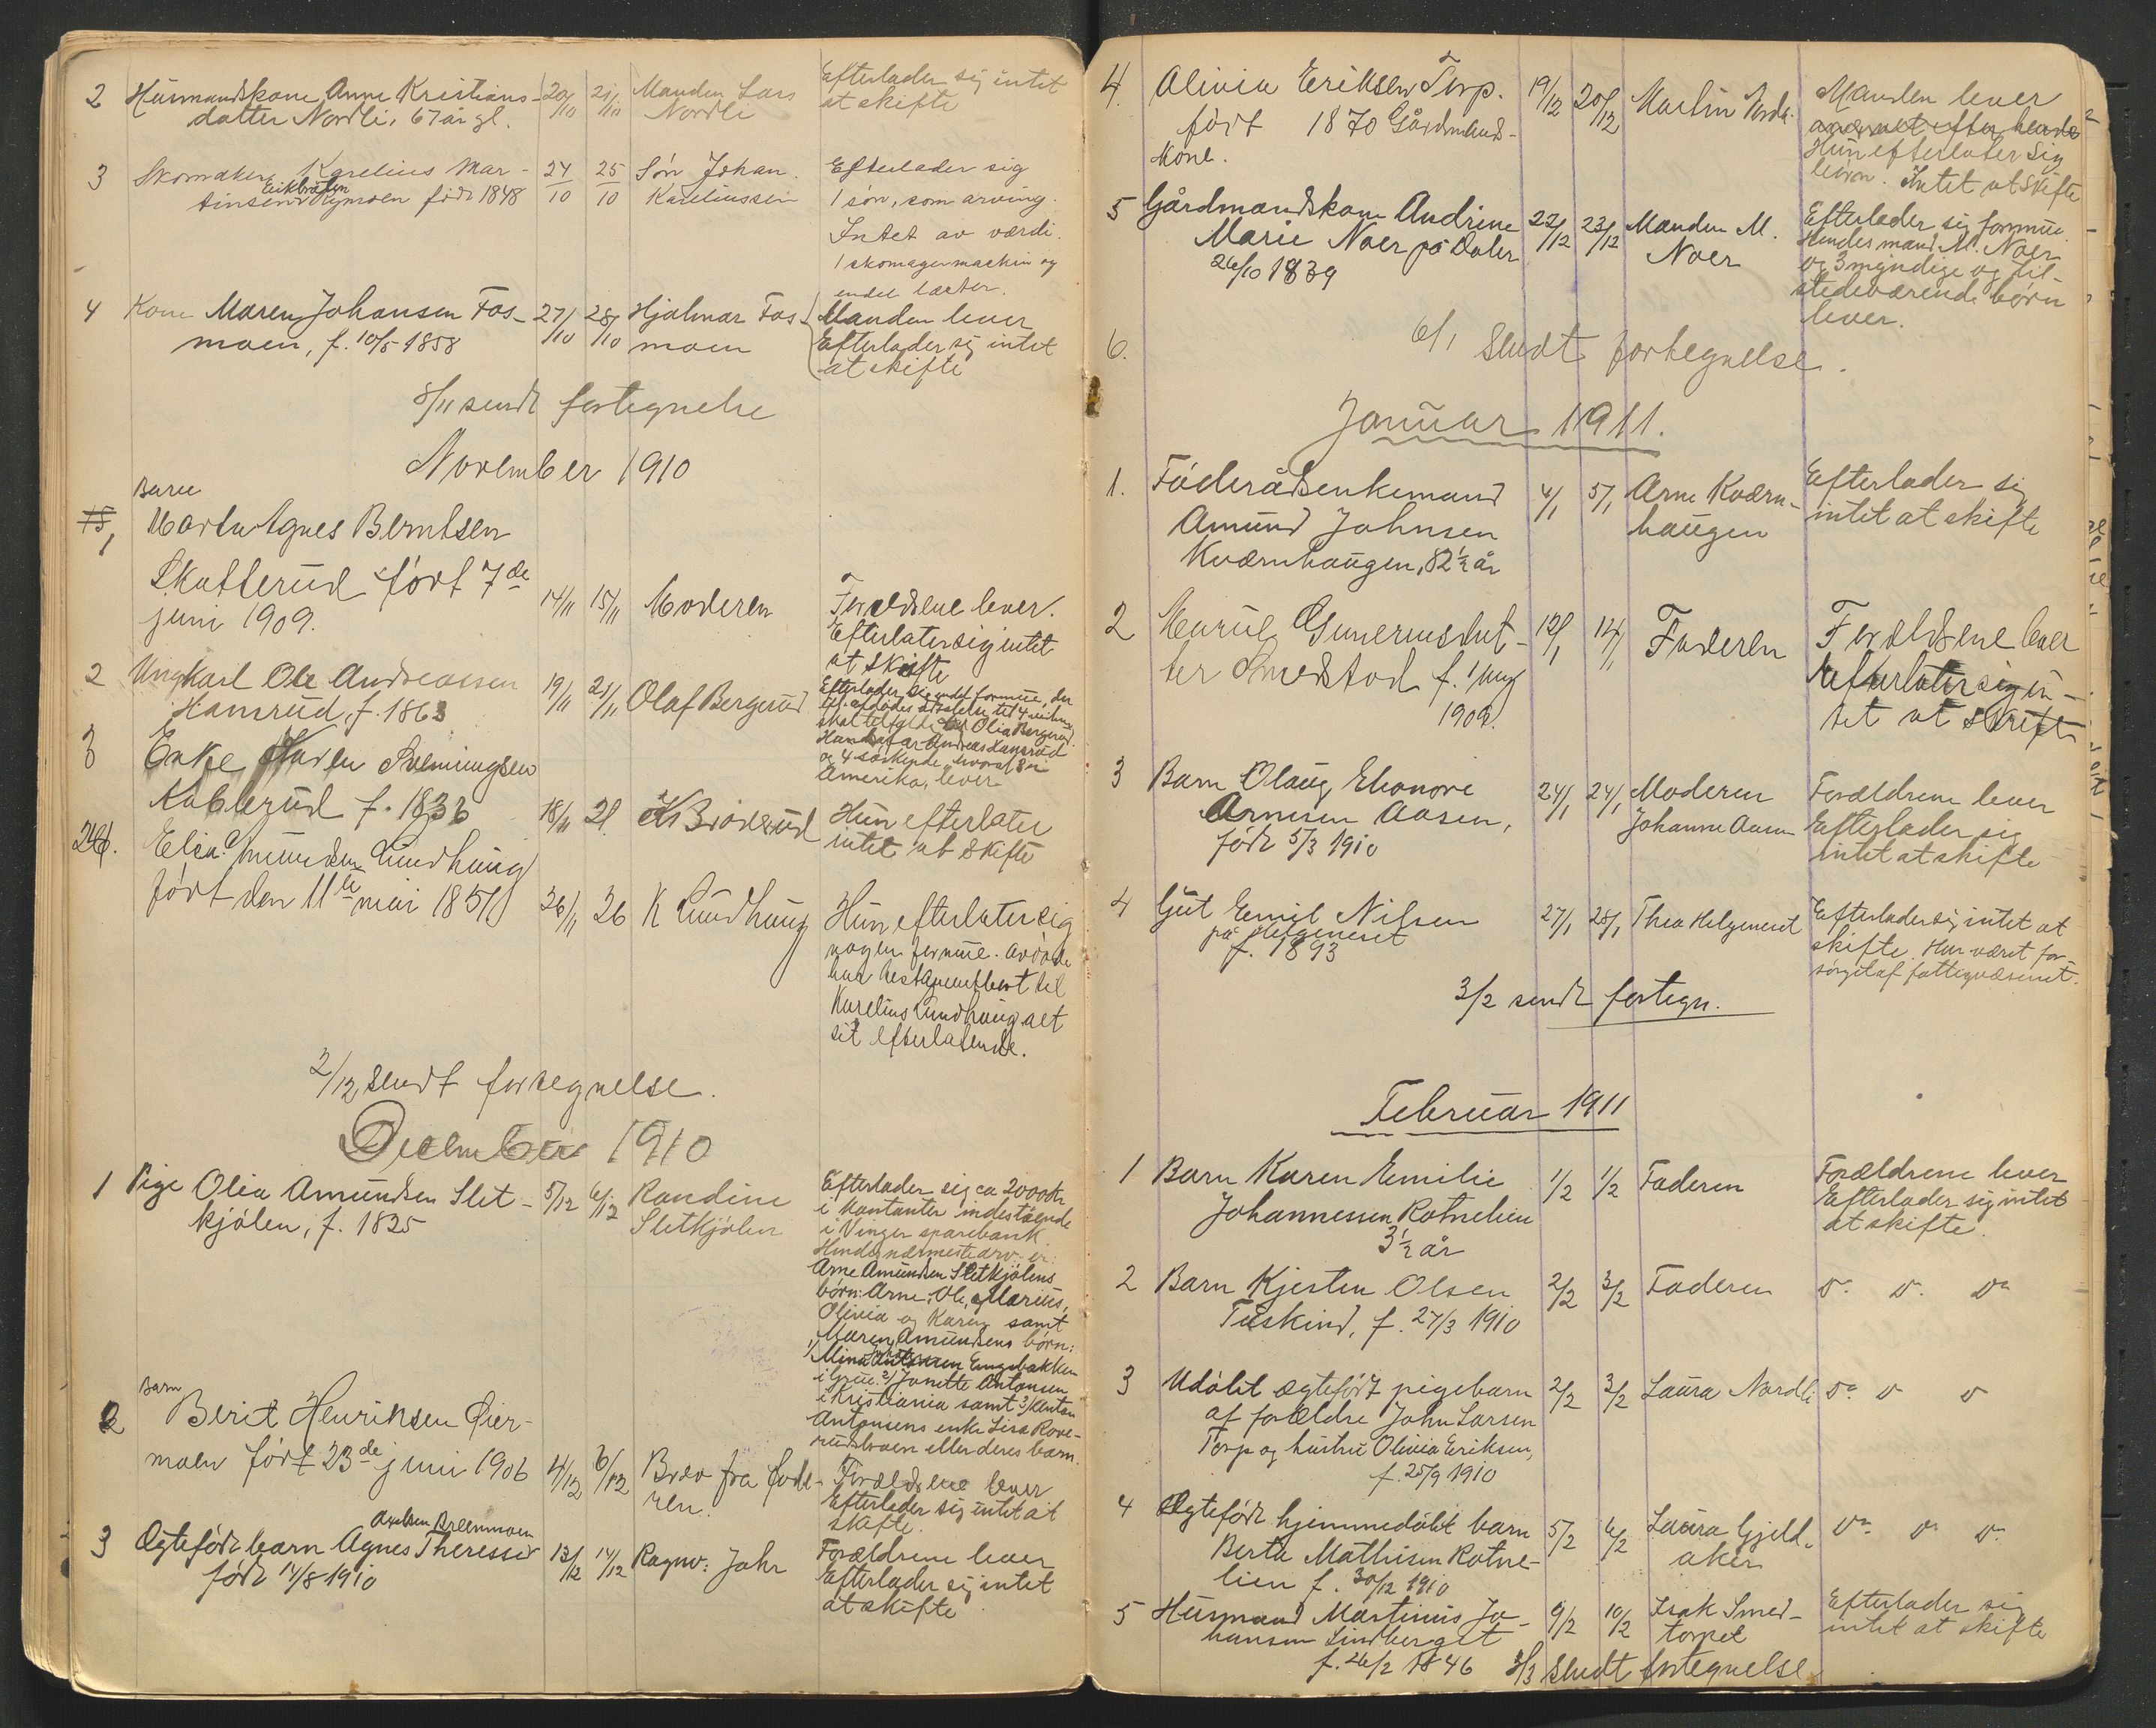 2 Husmandskone Anne Kristians- 20/10 21/10 Manden Lars Efterlader sig intet
datter Nordli, 67 år gl. Nordli at skifte
3 Skomaker Karelius Mar- 24/10 25/10 Søn Johan Efterlader sig
tinsen Rymoen född 1848 Kareliussen 1 søn, som arving.
Intet av værdi.
1 skomagermaskin og
endel læster.
4 Kone Maren Johansen Fos- 27/10 28/10 Hjalmar Fos- Manden lever
moen, f. 10/5 1858 moen Efterlader sig intet
at skifte
8/11 sendt fortegnelse
November 1910
Barn
1 Marta Agnes Berntsen
Skatterud född 7de 14/11 15/11 Moderen Forældrene lever.
juni 1909. Efterlater sig intet
at skifte
2 Ungkarl Ole Andreassen 19/11 21/11 Olaf Bergerud Efterlader sig endel formue, der
Hansrud, f. 1863
skal tilfalde Olia Bergerud.
Hans far Andreas Hansrud
og 4 søskende, hvoraf 3 i
Amerika, lever
3 Enke Karen Svenningsen
Kablerud f. 1836 18/11 21. K Broderud Hun efterlater
intet at skifte
4. Elia Amundsen Lundhaug
född den 11te mai 1851 26/11 26 K Lundhaug Hun efterlater sig
nogen formue. avdøde
har testamentert til
Karelius Lundhaug alt
sit efterlatende.
2/12 sendt fortegnelse.
December 1910
1 Pige Olia Amundsen Slet- 5/12 6/12 Randine Efterlader sig ca 2000 kr
kjølen, f. 1825 Sletkjølen i kontanter indestående
i Vinger sparebank.
Hendes nærmeste arv. er:
Arne Amundsen Sletkjølens
børn: Arne, Ole, Marius,
Olivia og Karen samt
Maren Amundsens børn:
1/ Mina Engebakken
i Grue. 2/ Janette Antonsen
i Kristiania samt 3/ Anton
Antonsens enke Lisa Rove-
rudsbraen eller deres barn.
Barn
2 Berit Henriksen Øier-
moen född 23de juni 1906 4/12 6/12 Brev fra fade- Forældrene lever
ren. Efterlader sig intet at
skifte.
Axelsen Breenmoen
3 Ægtefødt barn Agnes Theresie 13/12 14/12 Ragnv: Jahr Forældrene lever
född 14/8 1910 Efterlader sig intet
at skifte
4. Olivia Eriksen Torp. 19/12 20/12 Martin Manden lever
född 1870 Gårdmands-
kone. Hun efterlater sig
børn. Intet at skifte
5 Gårdmandskone Andrine 22/12 23/12 Manden M. Efterlader sig formue.
Marie Noer på Daler Noer Hendes mand M. Noer
26/10 1839 og 3 myndige og til-
stedeværende børn
lever.
6. 6/1 Sendt fortegnelse.
Januar 1911.
1. Føderådsenkemand 4/1 5/1 Arne Kværn- Efterlader sig
Amund Johnsen haugen intet at skifte
Kværnhaugen, 82 1/2 år
2 Marie Gunerusdat- 12/1 14/1 Faderen Forældrene lever
ter Smedstad f. 1/aug Efterlater sig in-
1909. tet at skifte
3 Barn Olaug Elenore 24/1 24/1 Moderen Forældrene lever
Arnesen Aasen, Johanne Aasen Efterlader sig
född 5/3 1910 intet at skifte
4 Gut Emil Nilsen 27/1 28/1 Thea Helgeneset Efterlader sig intet at
på Helgeneset skifte. Har været for-
f. 1893 sørget af fattigvæsenet.
3/2 sendt fortegn.
Februar 1911
1 Barn Karen Emilie 1/2 1/2 Faderen Forældrene lever
Johannessen Rotnelien Efterlader sig intet
3 1/2 år at skifte.
2 Barn Kjersten Olsen 2/2 3/2 Faderen Do Do Do
Tuskind, f. 27/3 1910
3 Udøbt ægtefødt pigebarn 2/2 3/2 Laura Nordli Do Do Do
af forældre John Larsen
Torp og hustru Olivia Eriksen,
f. 25/9 1910
4 Ægtefødt hjemmedøbt barn 5/2 6/2 Laura Gjeld- Do Do Do
Berta Mathisen Rotne- aker
lien f. 30/12 1910
5 Husmand Martinius Jo- 9/2 10/2 Isak Smed- Efterlader sig
hansen Lindberget torpet intet at skifte
f. 26/2 1846 3/3 Sendt fortegnelse